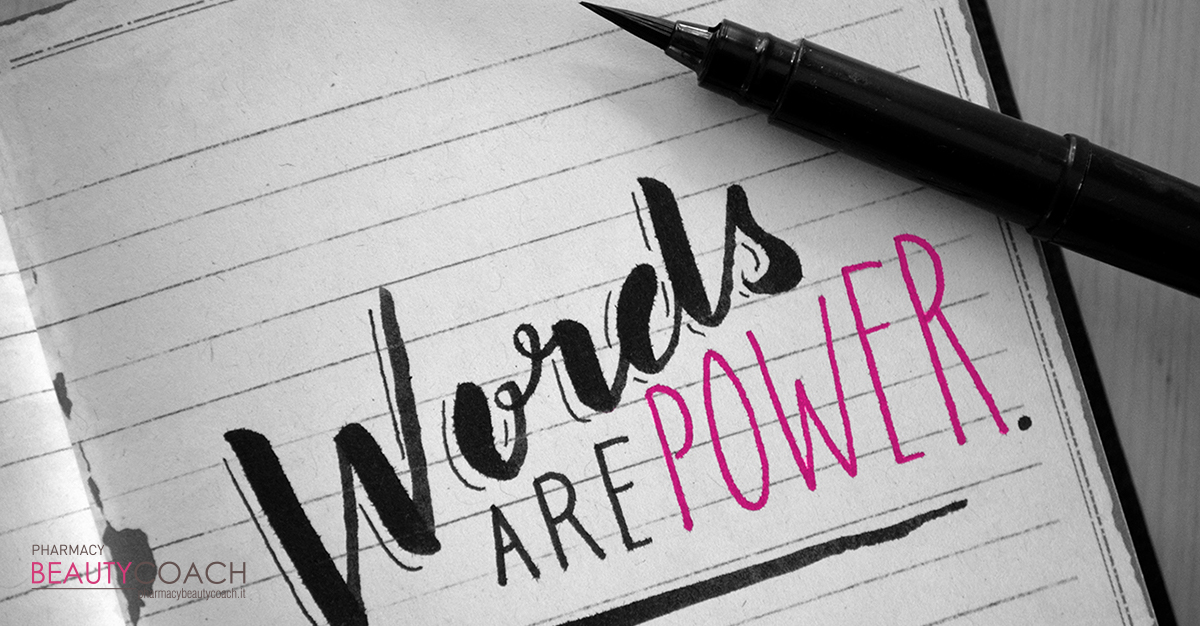 Words
ARE POWER.
PHARMACY
BEAUTYCOACH
pharmacybeautycoach.it